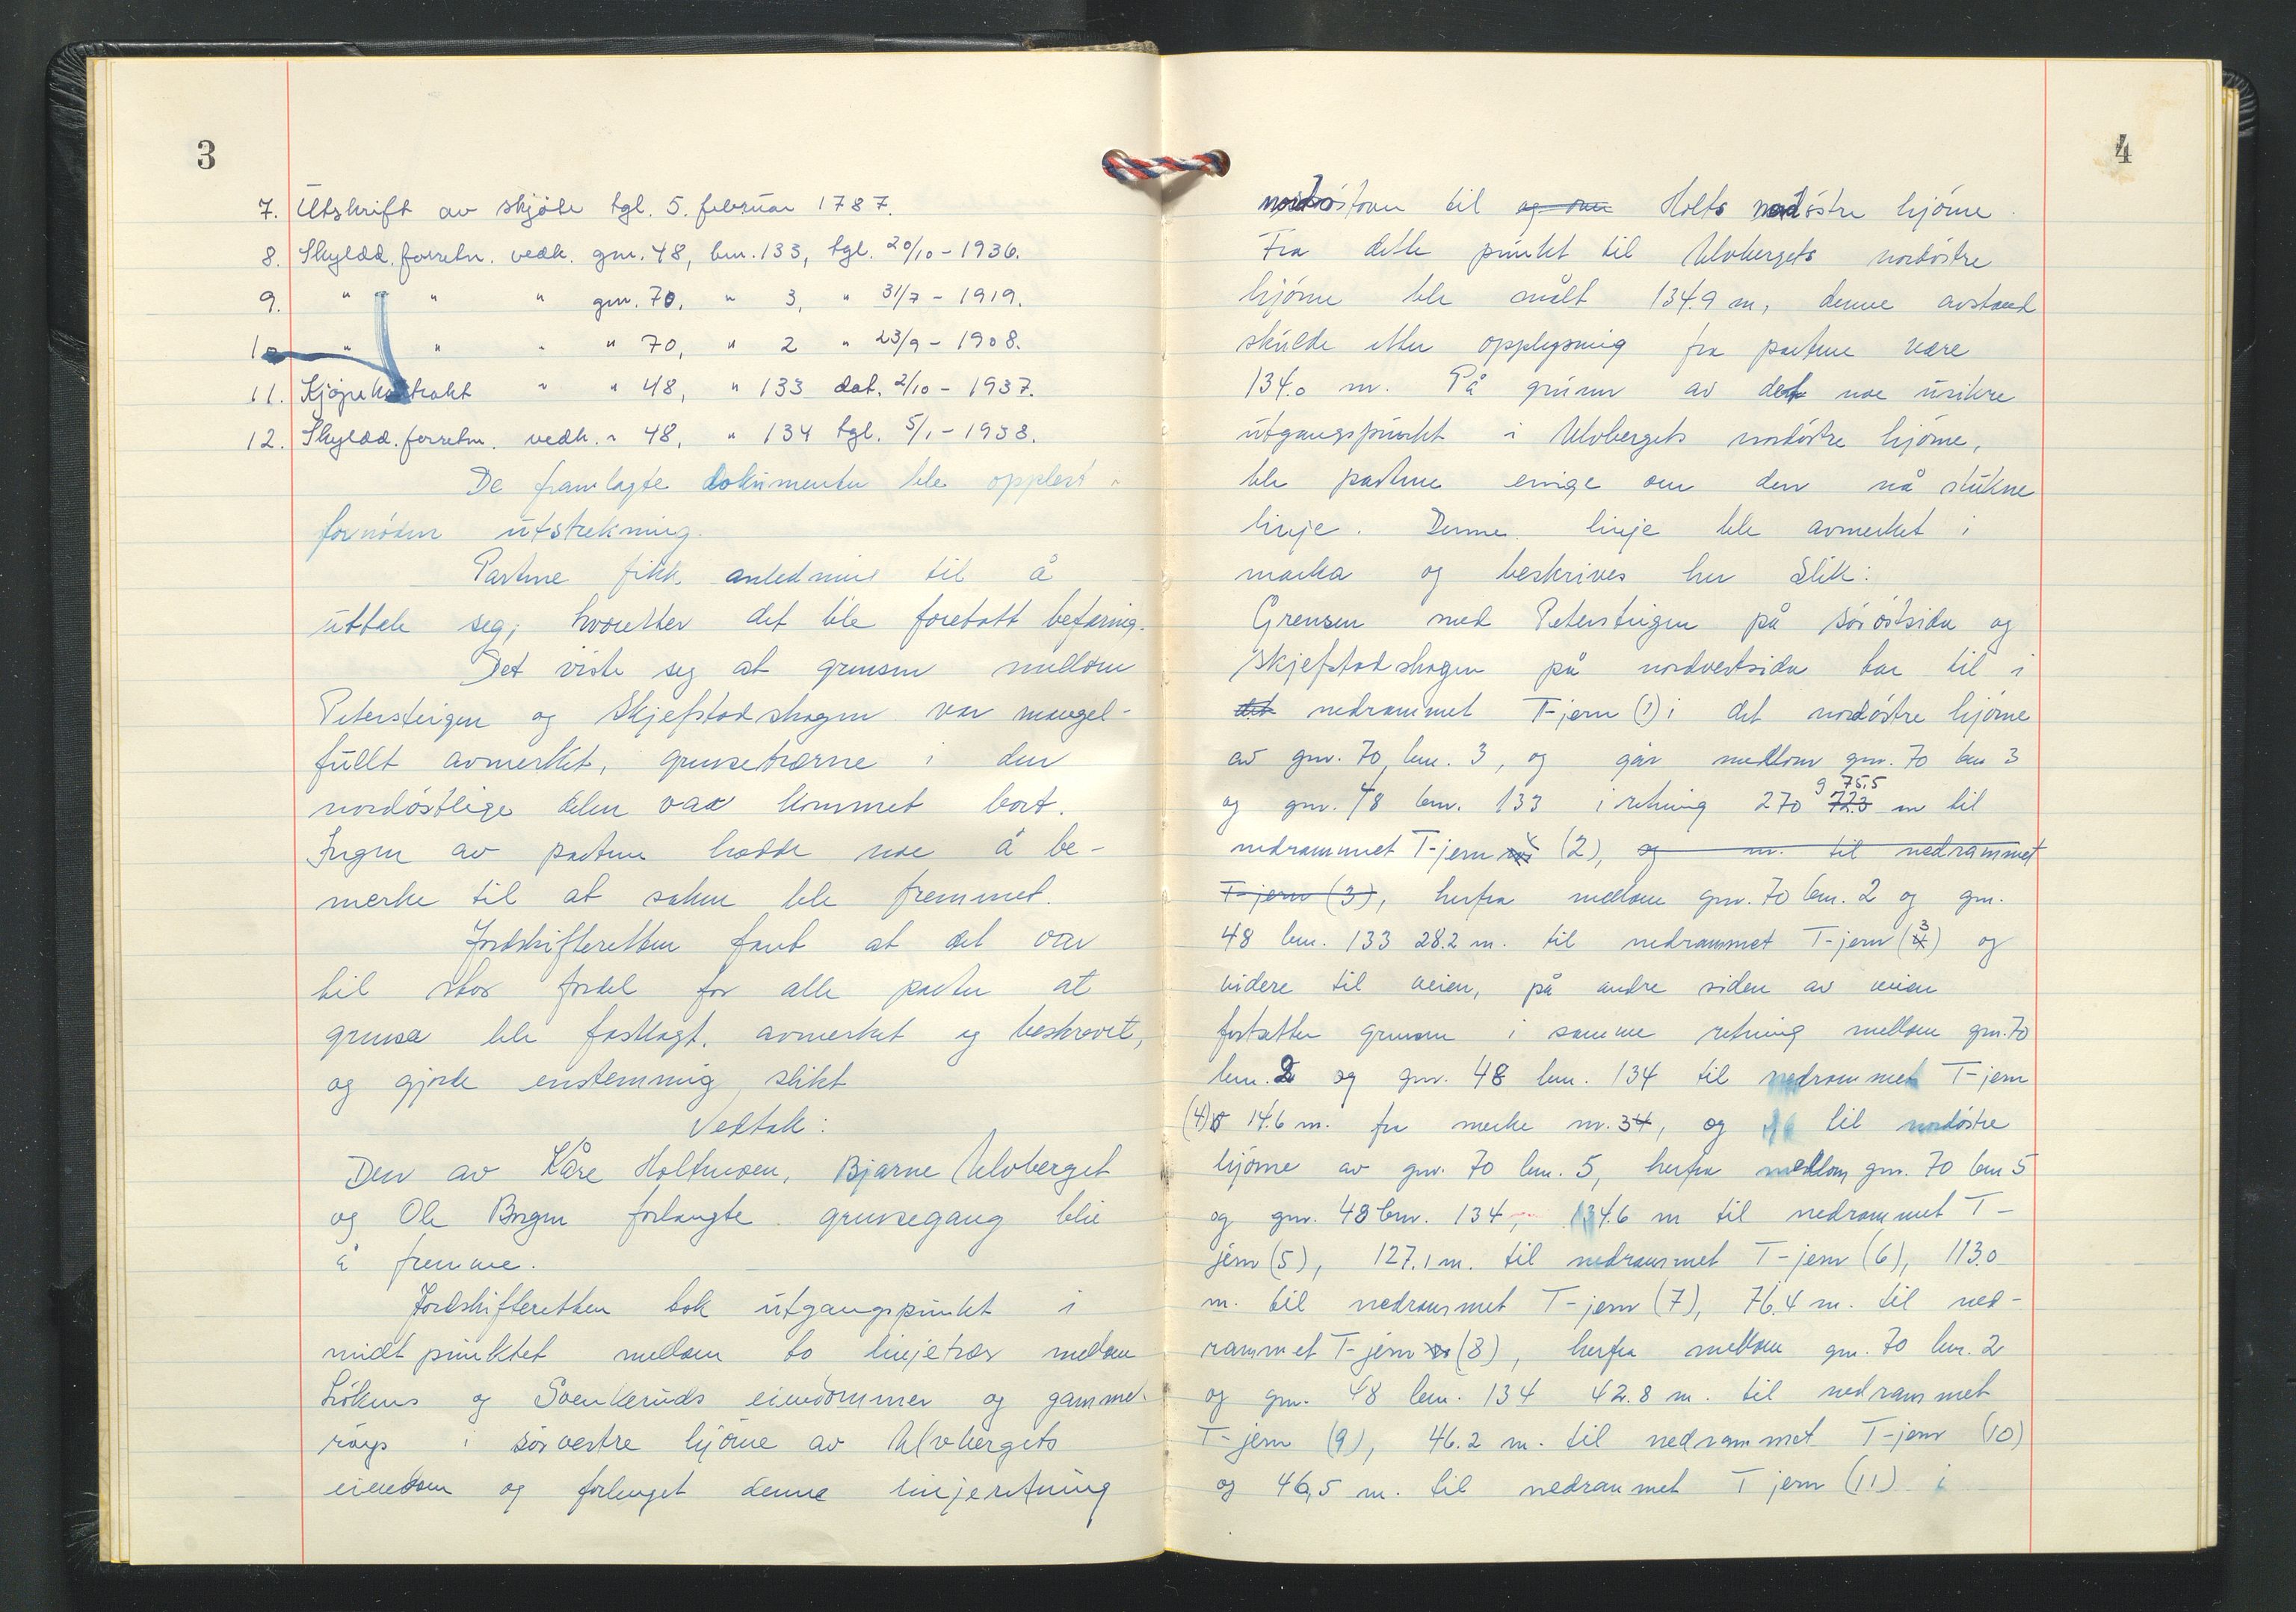 3
7. Utskrift av skjøte tgl. 5. februar 1787.
8. Skyldd. forretn. vedk. gnr. 48, bnr. 133, tgl. 20/10 - 1936.
9. " " " gnr. 70, " 3, " 31/7 - 1919.
10 " " " " 70, " 2 " 23/9 - 1908.
11. Kjøpekontrakt " " 48, " 133 dat. 2/10 - 1937.
12. Skyldd. forretn. vedk. " 48, " 134 tgl. 5/1 - 1938.
De framlagte dokumenter ble opplest i
fornøden utstrekning.
Partene fikk anledning til å
uttale seg, hvoretter det ble foretatt befaring.
Det viste seg at grensen mellom
Petersteigen og Skjefstadskogen var mangel-
fullt avmerket, grensetrærne i den
nordøstlige delen var kommet bort.
Ingen av partene hadde noe å be-
merke til at saken ble fremmet.
Jordskifteretten fant at det var
til stor fordel for alle parter at
grensa ble fastlagt, avmerket og beskrevet,
og gjorde enstemmig slikt
Vedtak:
Den av Kåre Holtmoen, Bjarne Ulvberget
og Ole Borgen forlangte grensegang blir
å fremme.
Jordskifteretten tok utgangspunkt i
midtpunktet mellom to linjetrær mellom
Løkens og Svenkeruds eiendommer og gammel
røys i sørvestre hjørne av Ulvbergets
eiendom og forlenget denne linjeretning
4
nordøstover til og over Holts nordøstre hjørne.
Fra dette punktet til Ulvbergets nordøstre
hjørne ble målt 134.9 m, denne avstand
skulde etter opplysning fra partene være
134.0 m. På grunn av det noe usikre
utgangspunkt i Ulvbergets nordøstre hjørne,
ble partene enige om den nå stukne
linje. Denne linje ble avmerket i
marka og beskrives her slik:
Grensen med Petersteigen på sørøstsida og
Skjefstadskogen på nordvestsida tar til i
det nedrammet T-jern (1) i det nordøstre hjørne
av gnr. 70, bnr. 3, og går mellom gnr. 70 bnr 3
og gnr. 48 bnr. 133 i retning 270 g 72.3 75.5 m til
nedrammet T-jern (2), og m. til nedrammet
T-jern (3), herfra mellom gnr. 70 bnr. 2 og gnr.
48 bnr. 133 28.2 m. til nedrammet T-jern (3) og
videre til veien, på andre siden av veien
fortsetter grensen i samme retning mellom gnr. 70
bnr. 2 og gnr. 48 bnr. 134 til nedrammet T-jern
(4) 14.6 m. fra merke nr. 3, og til nordøstre
hjørne av gnr. 70 bnr. 5, herfra mellom gnr. 70 bnr 5
og gnr. 48 bnr. 134, 134.6 m til nedrammet T-
jern (5), 127.1 m. til nedrammet T-jern (6), 113.0
m. til nedrammet T-jern (7), 76.4 m. til ned-
rammet T-jern (8), herfra mellom gnr. 70 bnr. 2
og gnr. 48 bnr. 134 42.8 m. til nedrammet
T-jern (9), 46.2 m. til nedrammet T-jern (10)
og 46,5 m. til nedrammet T jern (11) i